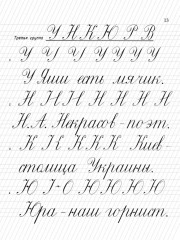 13
Третья группа У Н К Ю Р В
У У У У У У У
У Яши есть мячик.
Н Н Н Н Н Н Н
Н.А. Некрасов - поэт.
К К К К К Киев
столица Украины.
Ю Ю Ю Ю Ю Ю
Юра - наш горнист.